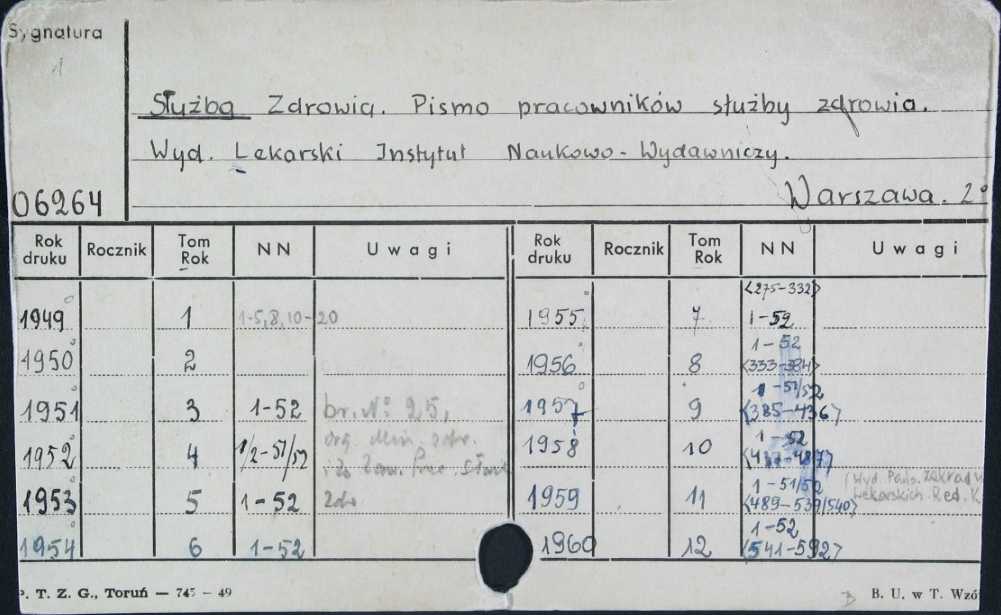 Sygnatura
Służba Zdrowia. Pismo pracowników służby zdrowia.
Wyd. Lekarski Instytut Naukowo-Wydawniczy.
06264 Warszawa. 2°
Rok druku Rocznik Tom Rok NN Uwagi Rok druku Rocznik Tom Rok NN Uwagi
1949 1 1-5,8,10-20 1955 7 <275-332> 1-52
1950 2 1956 8 1-52 <333-384>
1951 3 1-52 br. N° 25, 1957 9 1-51/52 <385-436>
1952 4 1/2-51/52 1958 10 1-52
1953 5 1-52 1959 11 1-51/52 <489-539/540> Lekarskich. Red. K
1954 6 1-52 1960 12 1-52 <541-592>
P. T. Z. G., Toruń — 745 - 49 B. U. w T. Wzó